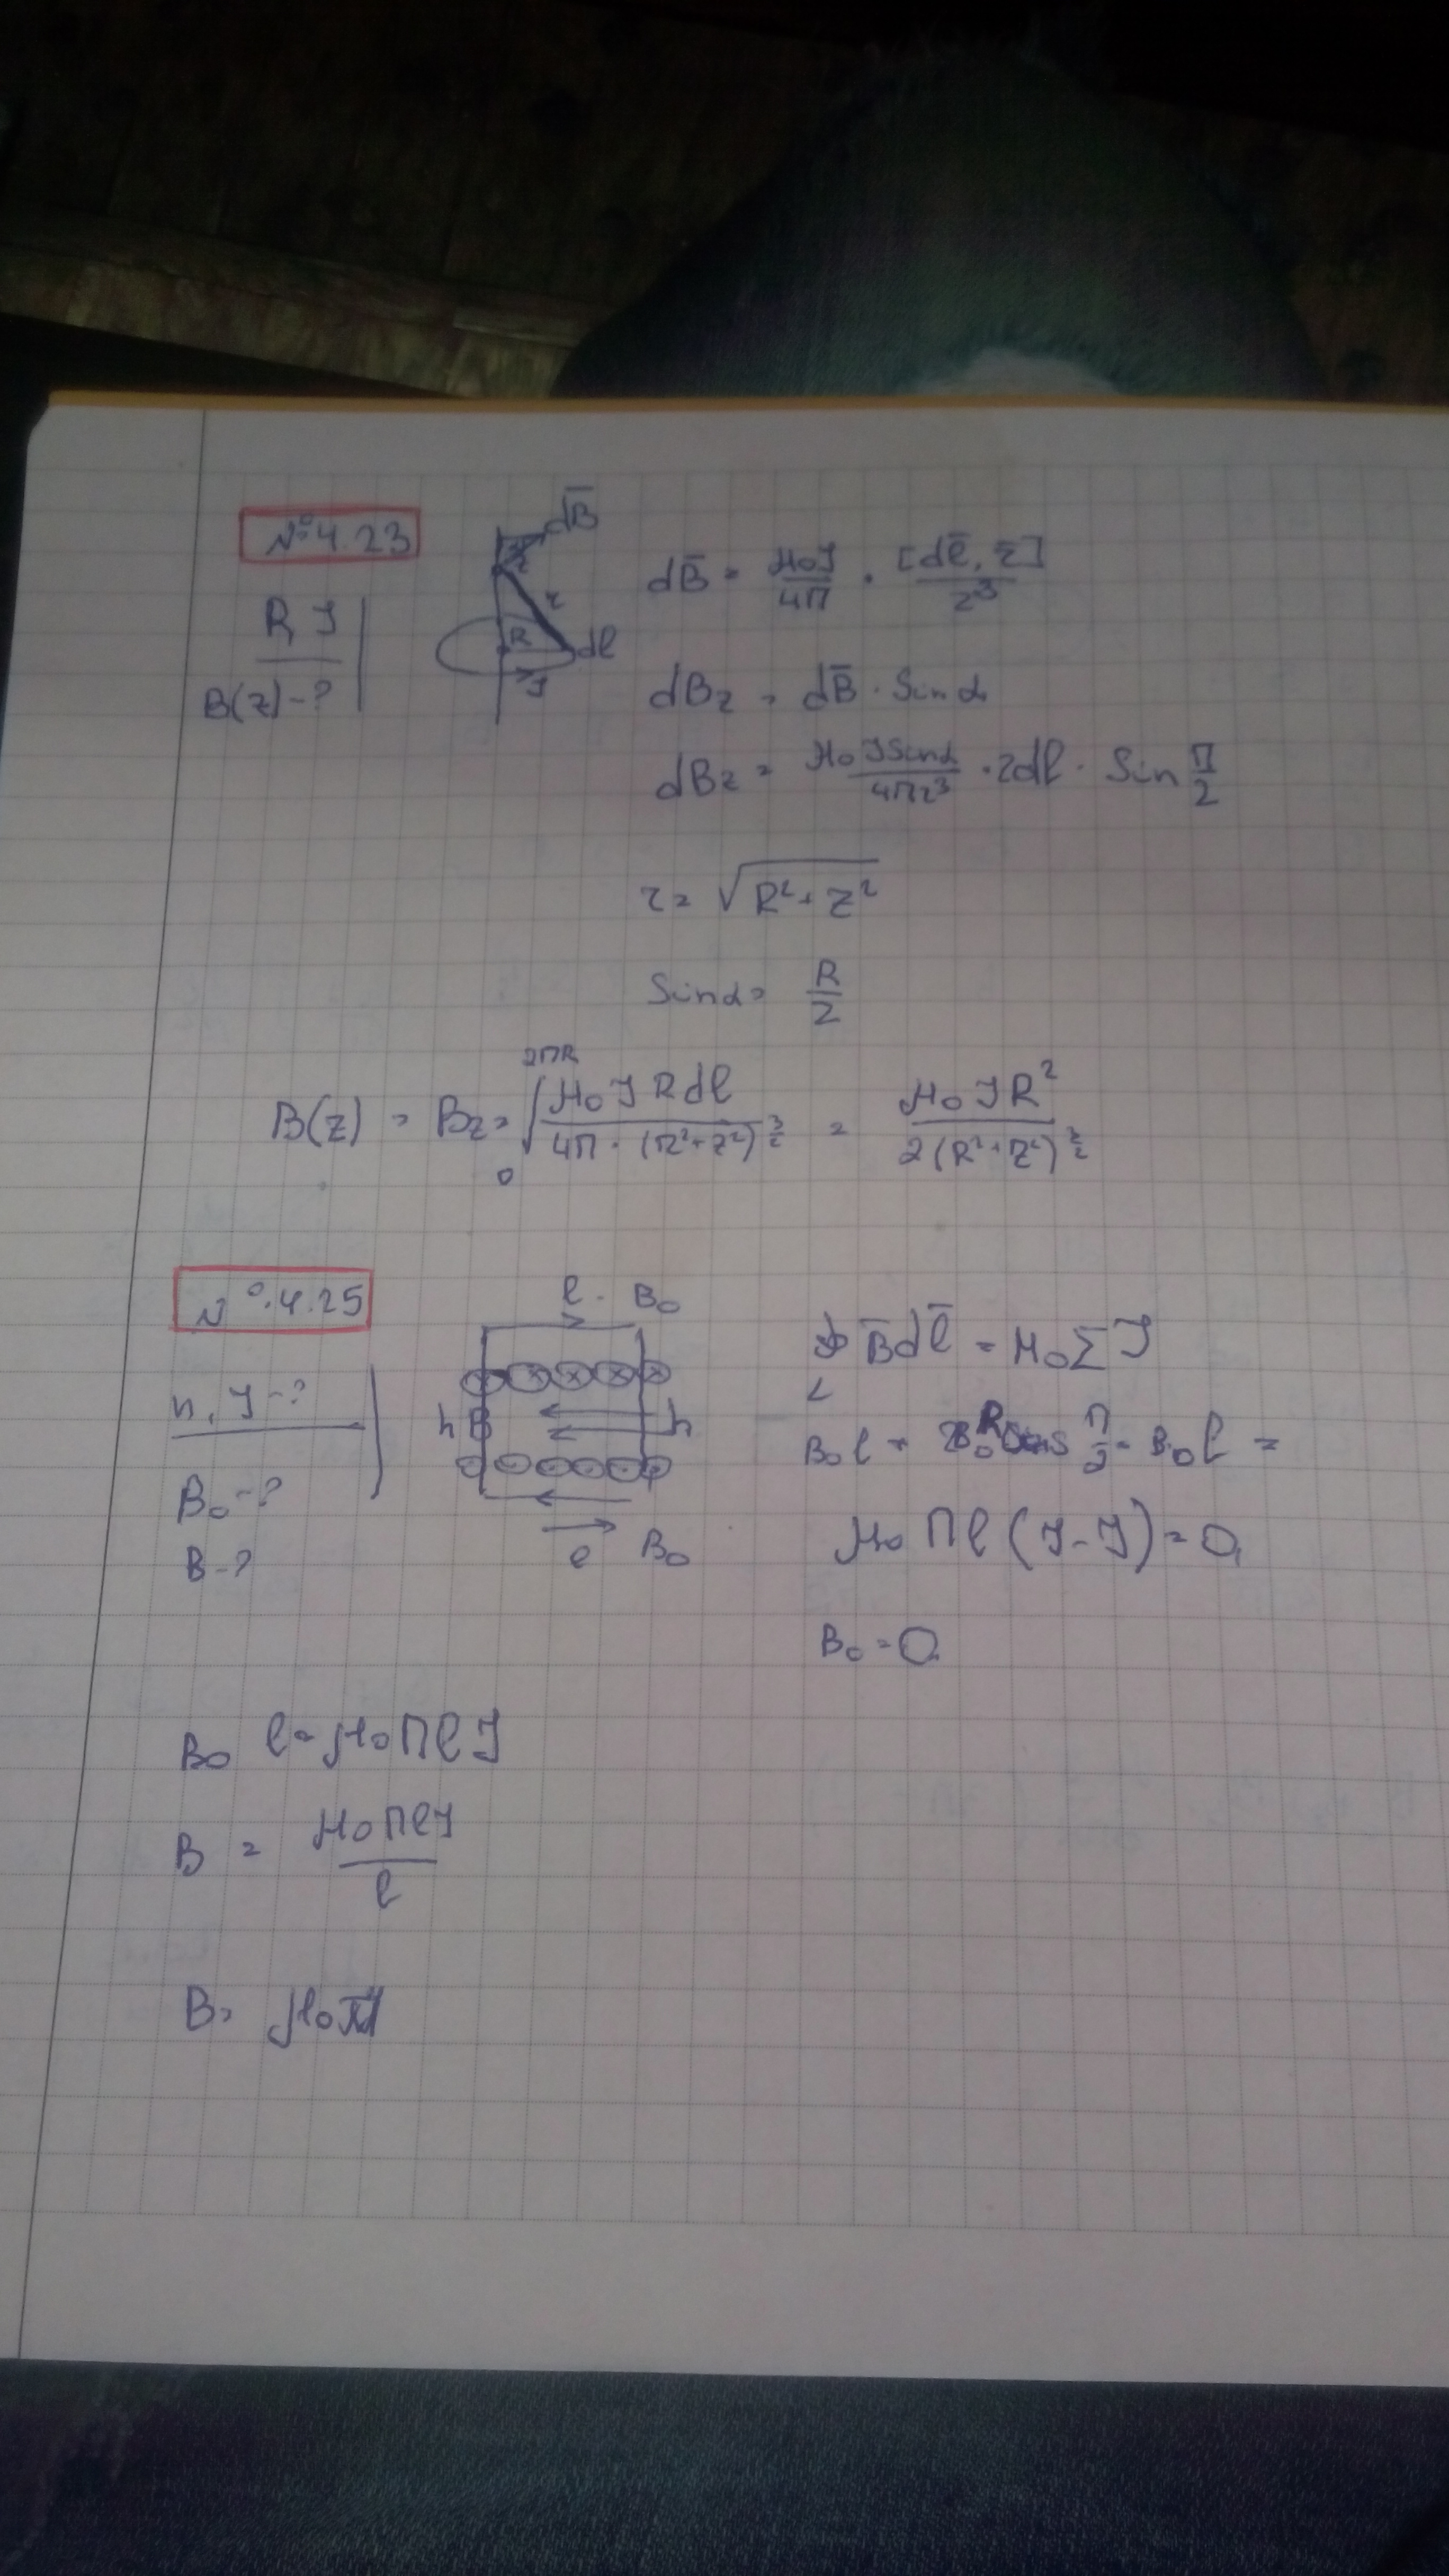 № 4.23
R, J
B(z) - ?
dB̄
r
R
dl
J
dB̄ = μ₀J/4π · [dl̄, r̄]/r³
dBz = dB̄ · Sin α
dBz = μ₀ J Sin α/4πr³ · rdl · Sin π/2
r = √(R² + z²)
Sin α = R/r
B(z) = Bz = ∫₀^2πR μ₀ J R dl/4π · (R² + z²)^3/2 = μ₀ J R²/2(R² + z²)^3/2
№ 4.25
n, J - ?
B₀ - ?
B - ?
l B₀
h B h
l B₀
∮ B̄dl̄ = μ₀ΣJ
L
B₀l + Cos π/2 - B₀l =
μ₀ n l (J - J) = 0,
B₀ = 0
B₀ l = μ₀ n l J
B = μ₀ n l J/l
B = μ₀ n J